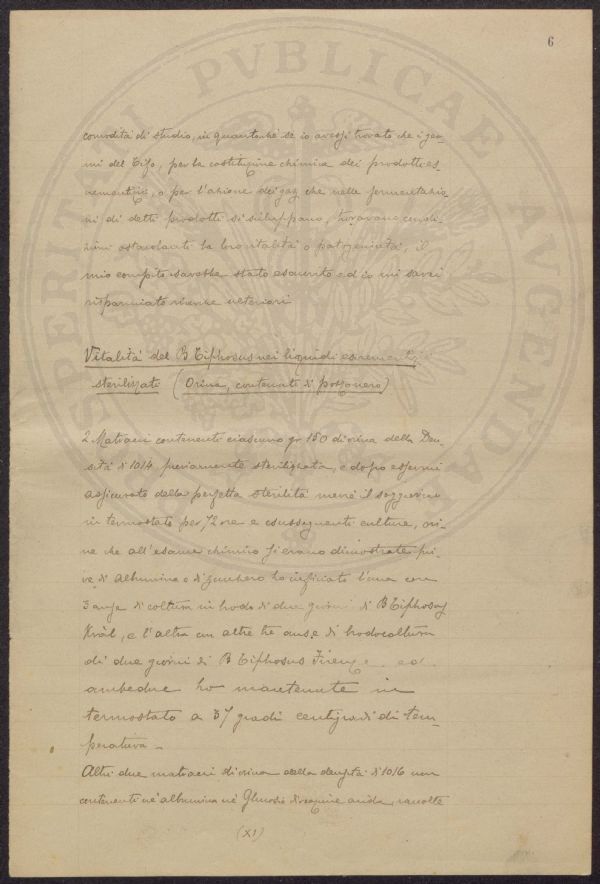 6
comodità di studio, in quantoché se io avessi trovato che i ger-
mi del Tifo, per la costituzione chimica dei prodotti es-
crementizi, o per l'azione dei gaz che nelle fermentazio-
ni di detti prodotti si sviluppano, trovavano condi-
zioni ostacolanti la loro vitalità o patogeniatà, il
mio compito sarebbe stato esaurito ed io mi sarei
risparmiato ricerche ulteriori
Vitalità del B Tiphosus nei liquidi escrementizi
sterilizzati (Orina, contenuti di pozzonero)
2 Matracci contenenti ciascuno gr 150 di orina della Den-
sità di 1014, previamente sterilizzata, e dopo essermi
assicurato della perfetta sterilità mercé il soggiorno
in termostato per 72 ore e susseguenti culture, ori-
ne che all'esame chimico si erano dimostrate pri-
ve di albumina o di zucchero ho inficiato l'una con
3 anse di coltura in brodo di due giorni di B Tiphosus
Kràl, e l'altra con altre tre anse di brodocoltura
di due giorni di B Tiphosus Firenze ed
ambedue ho mantenute in
termostato a 37 gradi centigradi di tem-
peratura -
Altri due matracci di orina della densità di 1016 non
contenenti né albumina né Glucosio di reazione acida, raccolte
(XI)
POSTERITATI PVBLICAE AVGENDAE